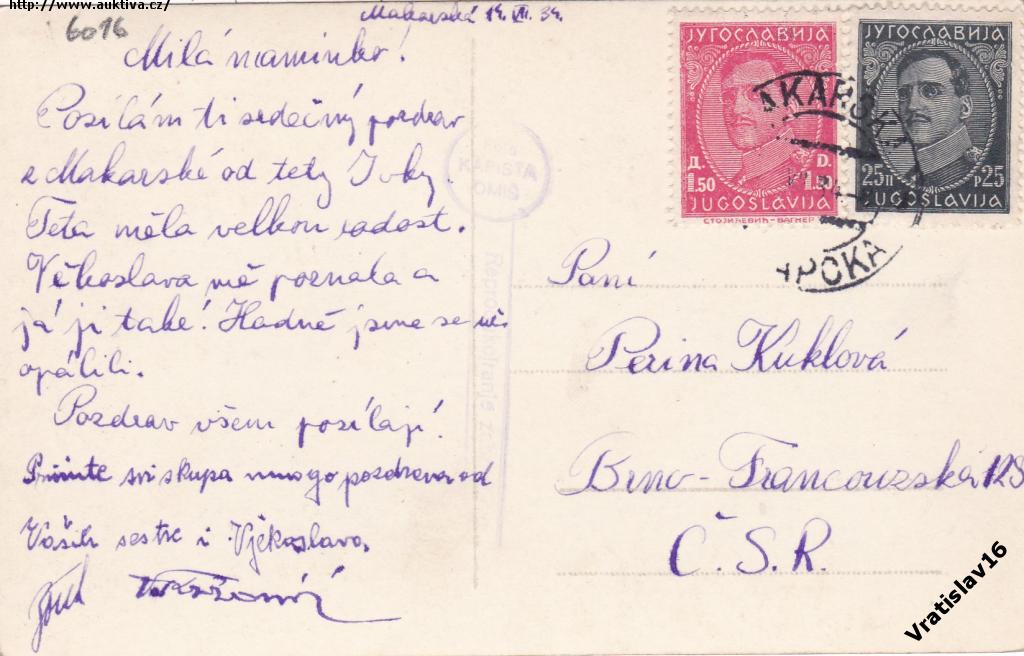 http://www.auktiva.cz/
6016
Makarská 14. VII. 34.
Milá maminko!
Posílám ti srdečný pozdrav
z Makarské od tety Ivky.
Teta měla velkou radost.
Věkoslava mě poznala a
já ji také! Hodně jsme se už
opálili.
Pozdrav všem posílají!
Primite svi skupa mnogo pozdrava od
Vaših sestre i Vjékoslava.
ЈУГОСЛАВИЈА
Д. D.
1.50 1.50
JUGOSLAVIJA
СТОЈИЋЕВИЋ-ВАГНЕР
ЈУГОСЛАВИЈА
25П P25
JUGOSLAVIJA
MAKARSKA
АРСКА
FOTO
KARISTA
OMIŠ
Paní
Perina Kuklová
Brno-Francouzská 128
Č.S.R.
Vratislav16